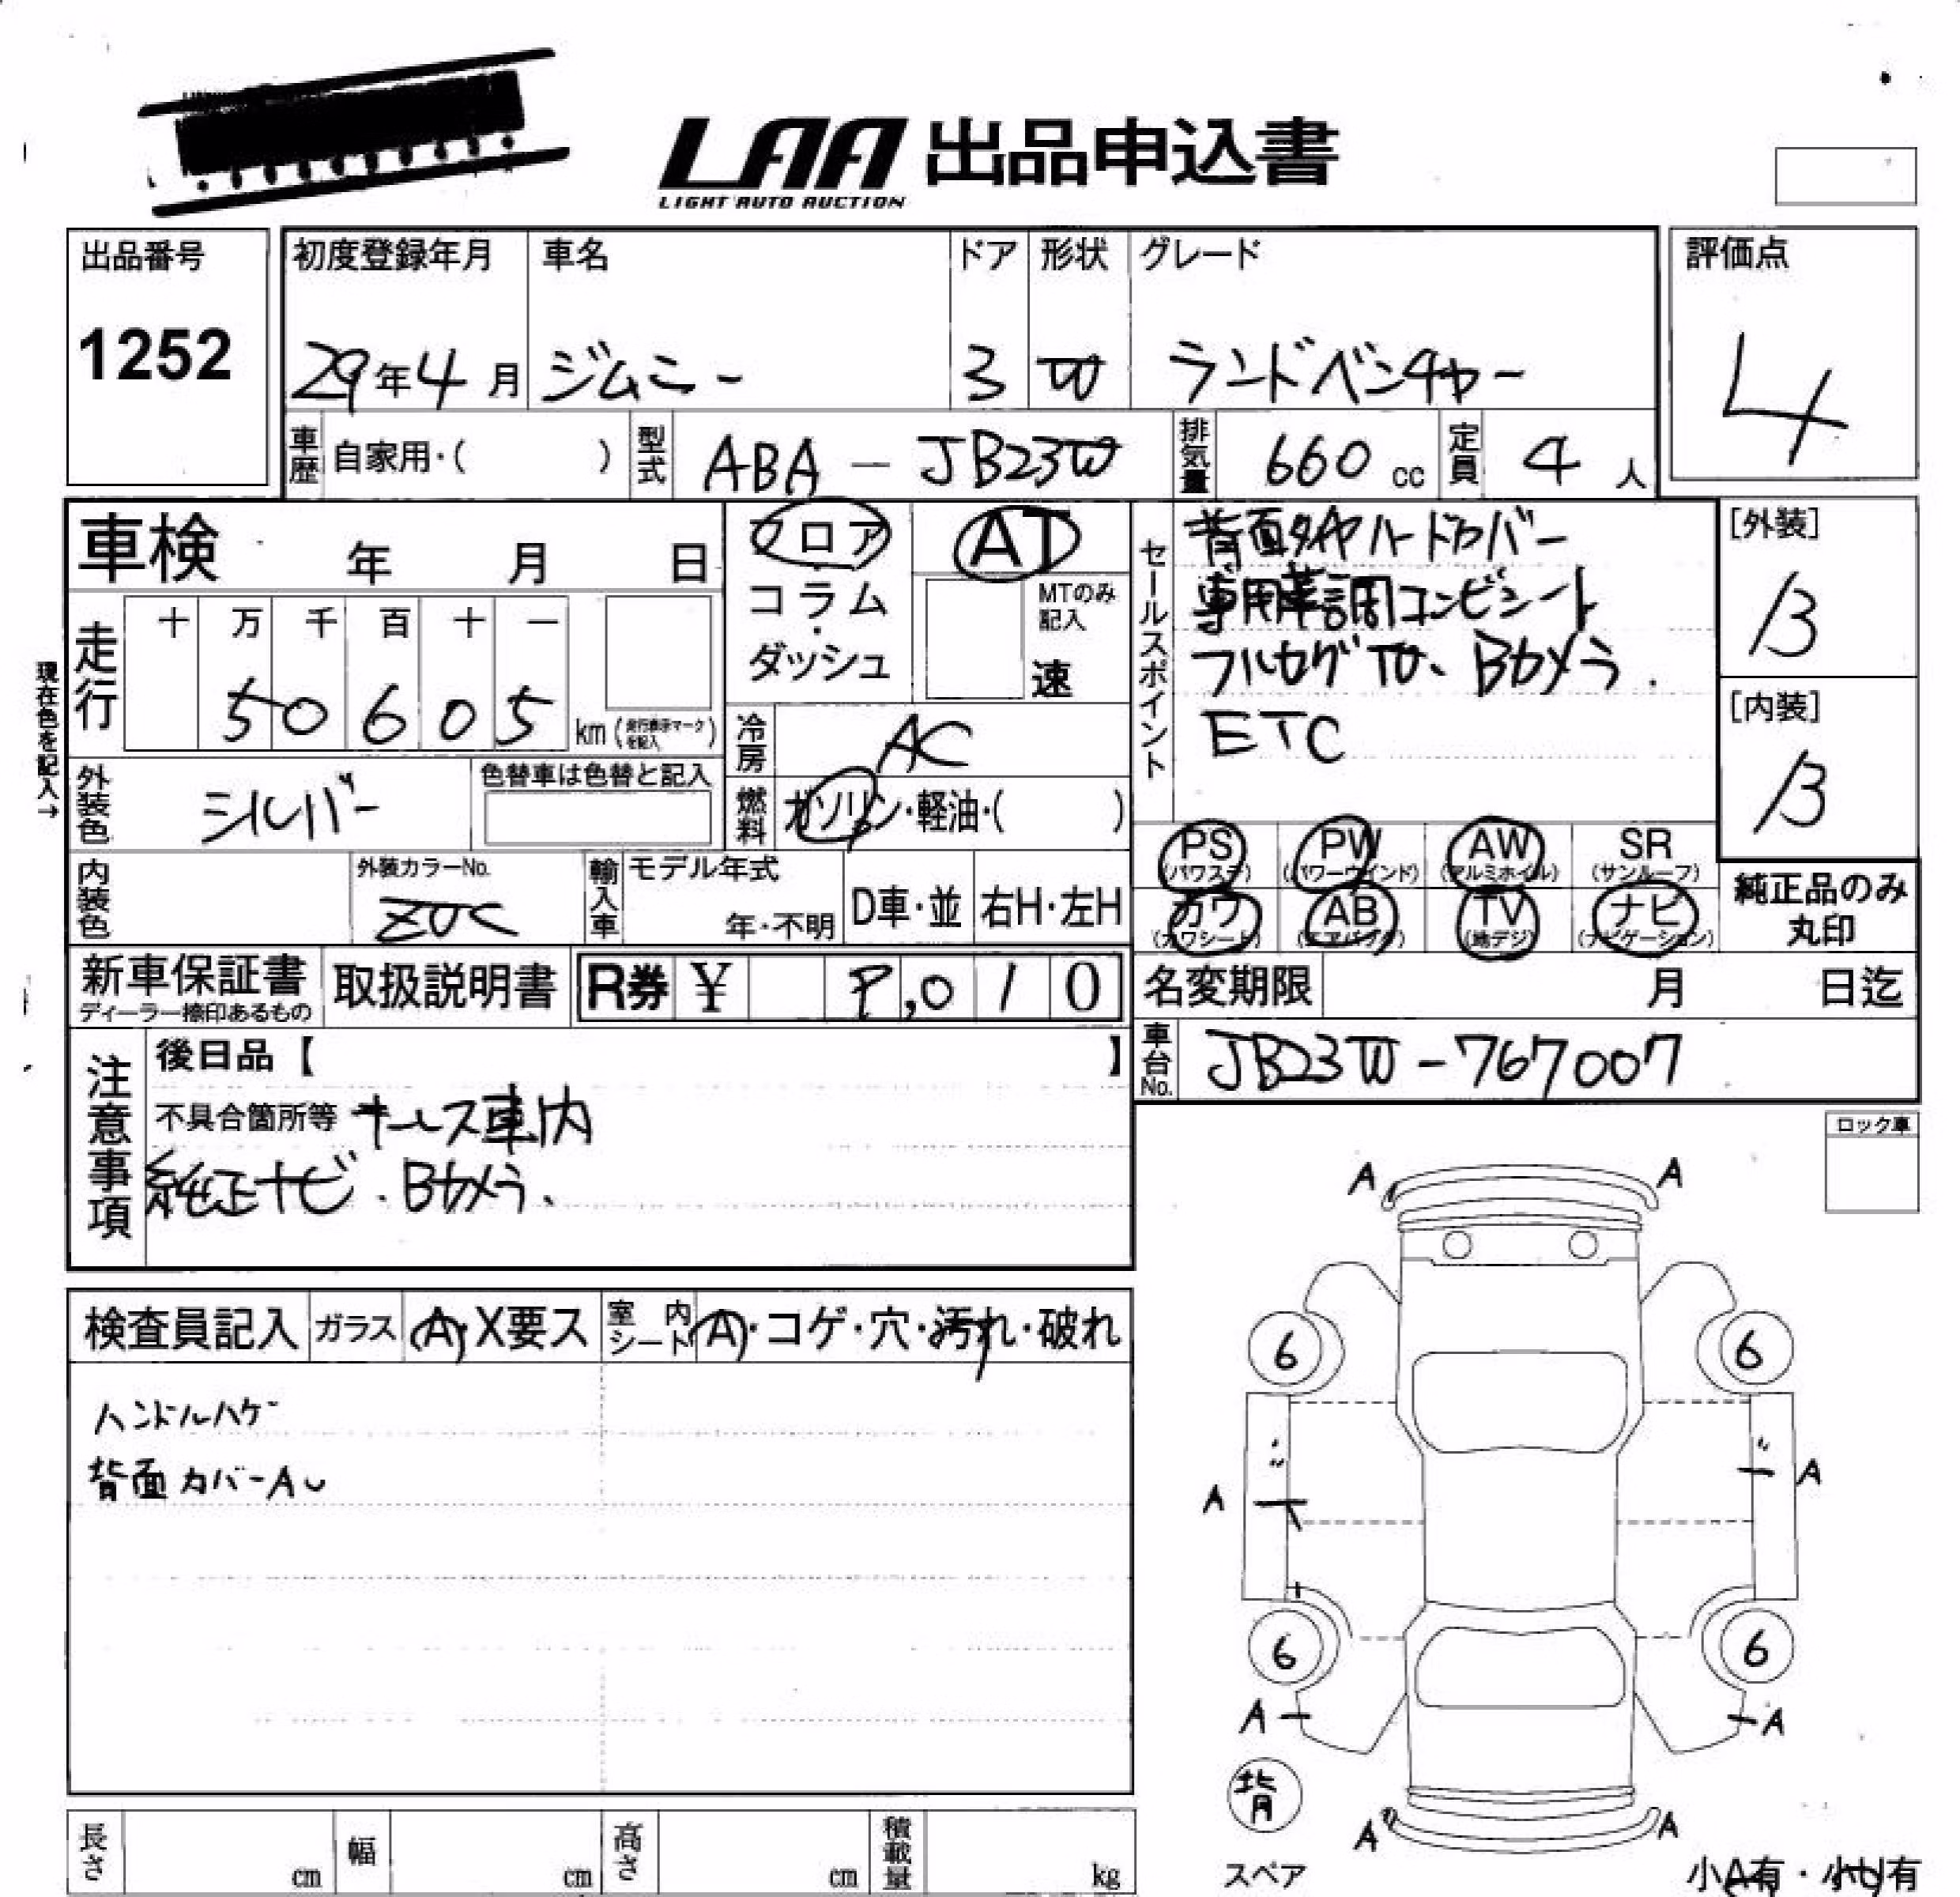 LAA 出品申込書
LIGHT AUTO AUCTION
出品番号
1252
初度登録年月 車名 ドア 形状 グレード
29年4月 ジムニー 3 W ランドベンチャー
評価点
4
車歴 自家用・( ) 型式 ABA-JB23W 排気量 660cc 定員 4人
車検 年 月 日
フロア・コラム・ダッシュ
AT
MTのみ記入
速
セールスポイント
背面タイヤハードカバー
専用革調コンビシート
フルセグTV、Bカメラ.
ETC
[外装]
B
[内装]
B
現在色を記入→
走行 十 万 千 百 十 一
50605 km(走行表示マークを記入)
冷房 AC
外装色 シルバー 色替車は色替と記入
燃料 ガソリン・軽油・( )
PS (パワステ) PW (パワーウインド) AW (アルミホイル) SR (サンルーフ)
カワ (カワシート) AB (エアバック) TV (地デジ) ナビ (ナビゲーション)
純正品のみ丸印
内装色 外装カラーNo. Z0C 輸入車 モデル年式 年・不明 D車・並 右H・左H
新車保証書 ディーラー捺印あるもの 取扱説明書 R券 ¥ 9,010
名変期限 月 日迄
車台No. JB23W-767007
注意事項
後日品【 】
不具合箇所等 キーレス車内
純正ナビ.Bカメラ、
ロック車
検査員記入 ガラス A・X要ス 室内シート A・コゲ・穴・汚れ・破れ
ハンドルハゲ
背面カバーAU
A A
6 6
A A
6 6
A A
背
スペア
A A
小A有・小U有
長さ cm 幅 cm 高さ cm 積載量 kg